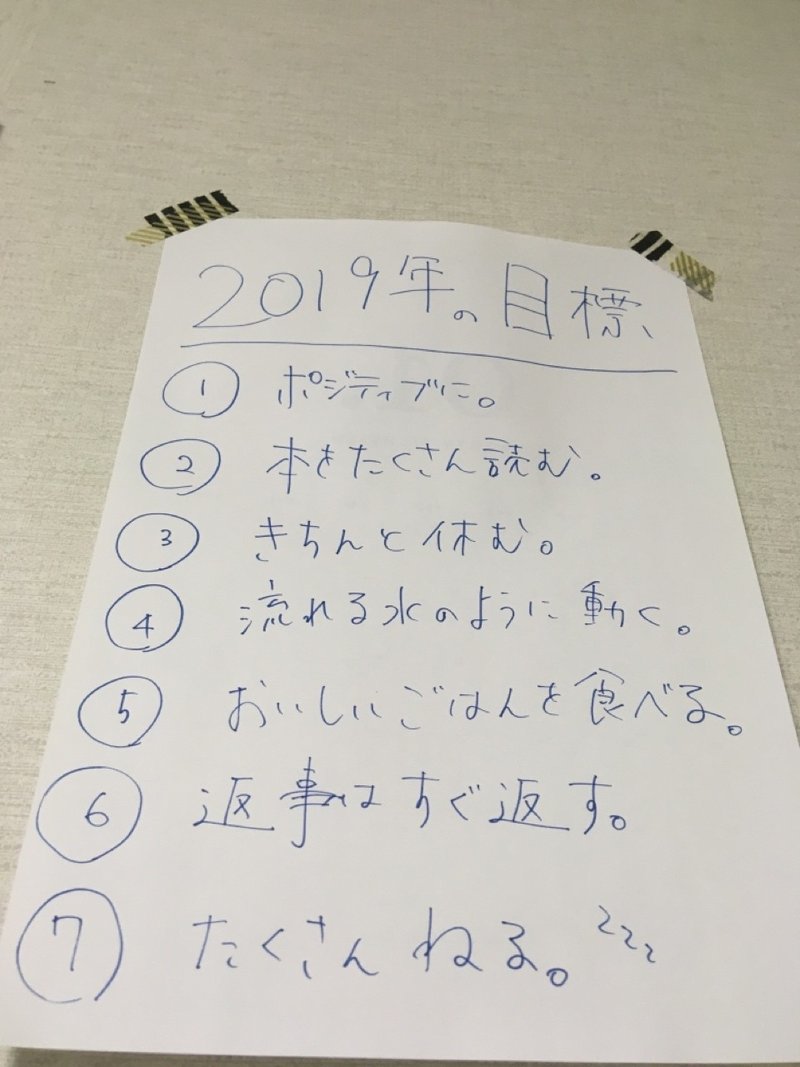 2019年の目標、
① ポジティブに。
② 本をたくさん読む。
③ きちんと休む。
④ 流れる水のように動く。
⑤ おいしいごはんを食べる。
⑥ 返事はすぐ返す。
⑦ たくさんねる。zzz